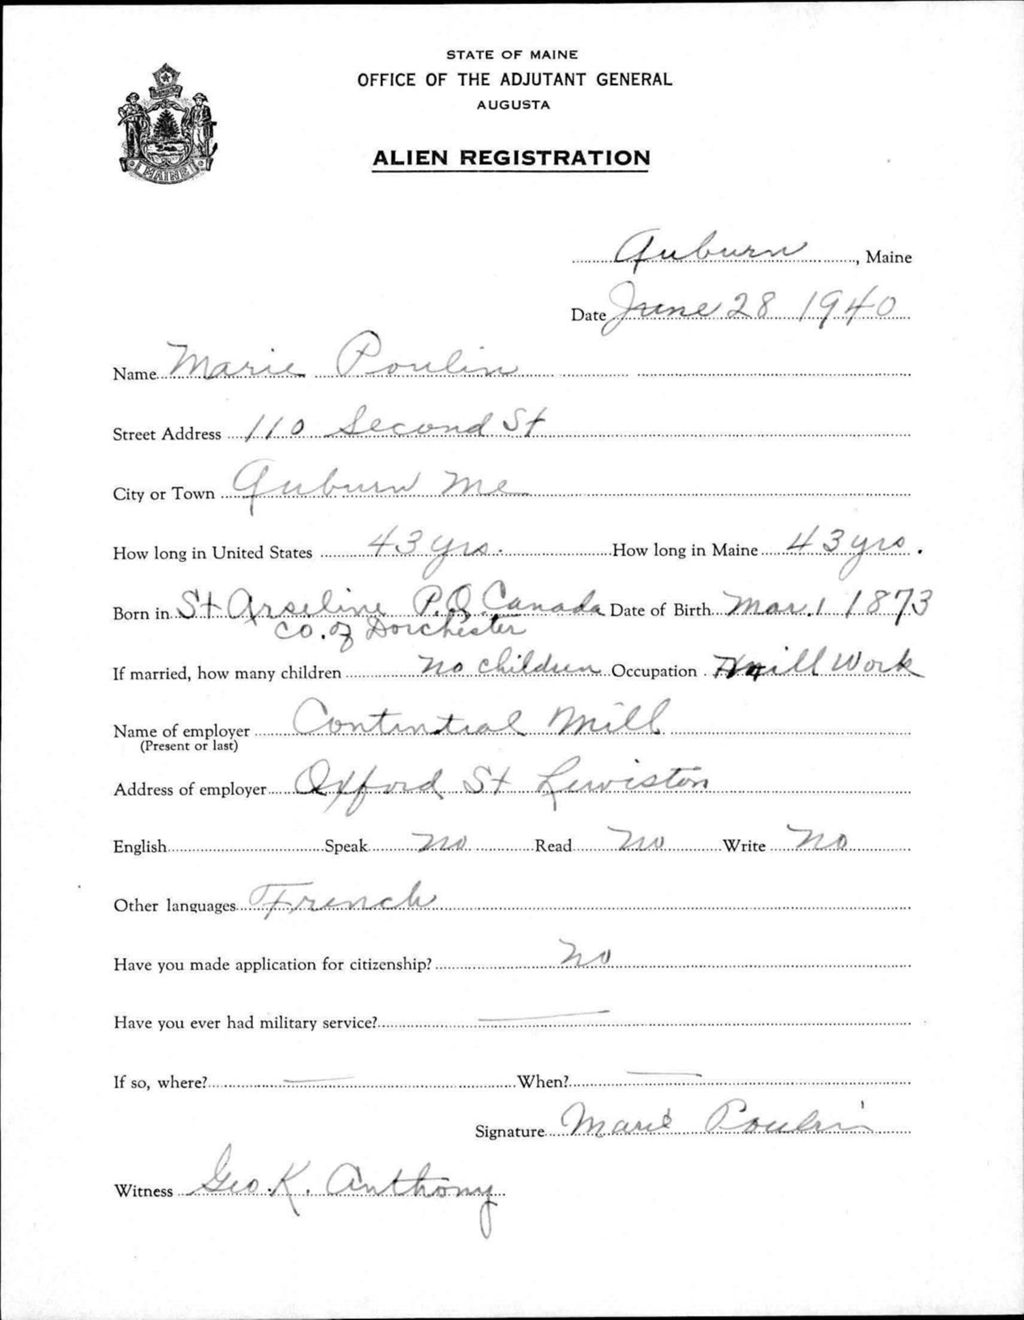 STATE OF MAINE
OFFICE OF THE ADJUTANT GENERAL
AUGUSTA
ALIEN REGISTRATION
MAINE
Auburn, Maine
Date June 28 1940
Name Marie Poulin
Street Address 110 Second St
City or Town Auburn Me
How long in United States 43 yrs. How long in Maine 43 yrs.
Born in St Arseline P.Q. Canada Date of Birth Mar. 1 1873
Co. of Dorchester
If married, how many children no children Occupation Mill Work
Name of employer Contintial Mill
(Present or last)
Address of employer Oxford St Lewiston
English Speak no Read no Write no
Other languages French
Have you made application for citizenship? No
Have you ever had military service? —
If so, where? — When? —
Signature Marie Poulin
Witness Geo. K. Anthony